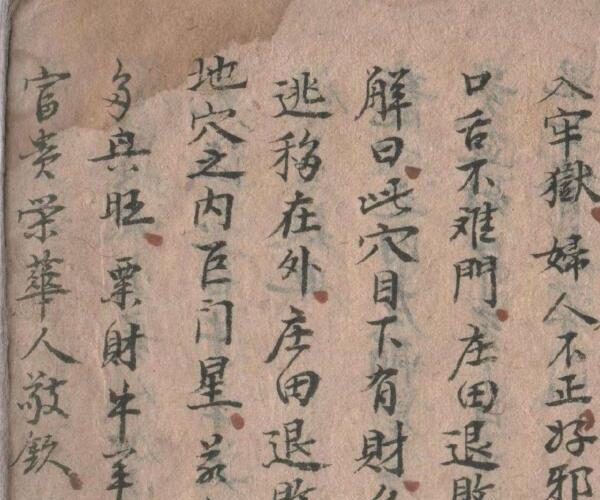 入牢獄婦人不正好邪
口舌不难門庄田退敗
解曰此穴目下有財
逃移在外庄田退敗
地穴之内巨门星
多興旺粟財牛羊
富贵荣華人敬欽